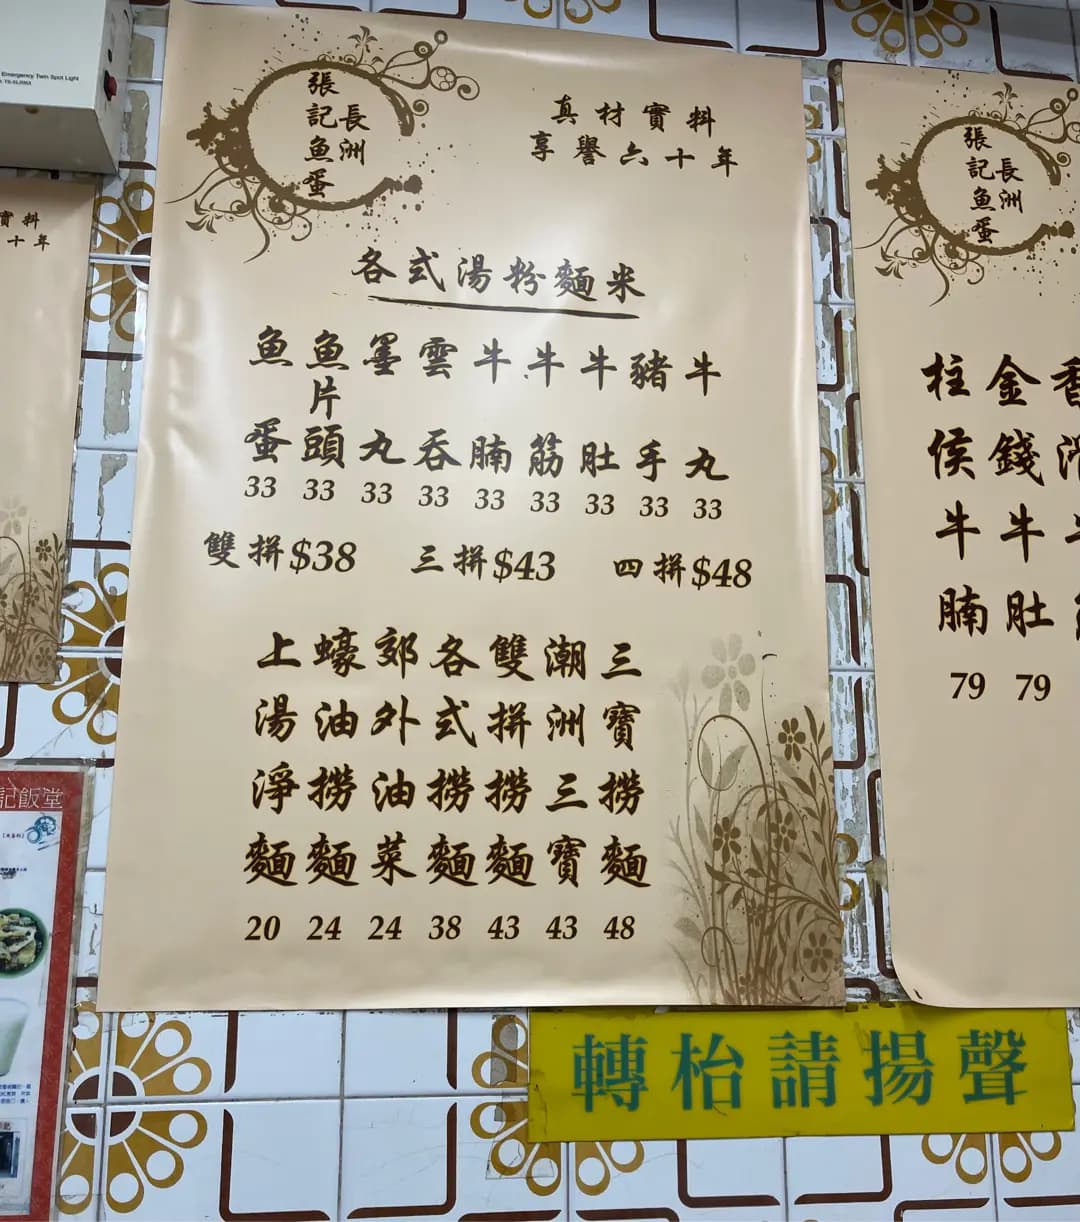 Emergency Twin Spot Light
長洲
張記魚蛋
真材實料
享譽六十年
各式湯粉麵米
魚蛋 33
魚片頭 33
墨丸 33
雲吞 33
牛腩 33
牛筋 33
牛肚 33
豬手 33
牛丸 33
雙拼$38 三拼$43 四拼$48
上湯淨麵 20
蠔油撈麵 24
郊外油菜 24
各式撈麵 38
雙拼撈麵 43
潮洲三寶 43
三寶撈麵 48
長洲
張記魚蛋
柱侯牛腩 79
金錢牛肚 79
香滑牛
實料
十年
記飯堂
轉枱請揚聲